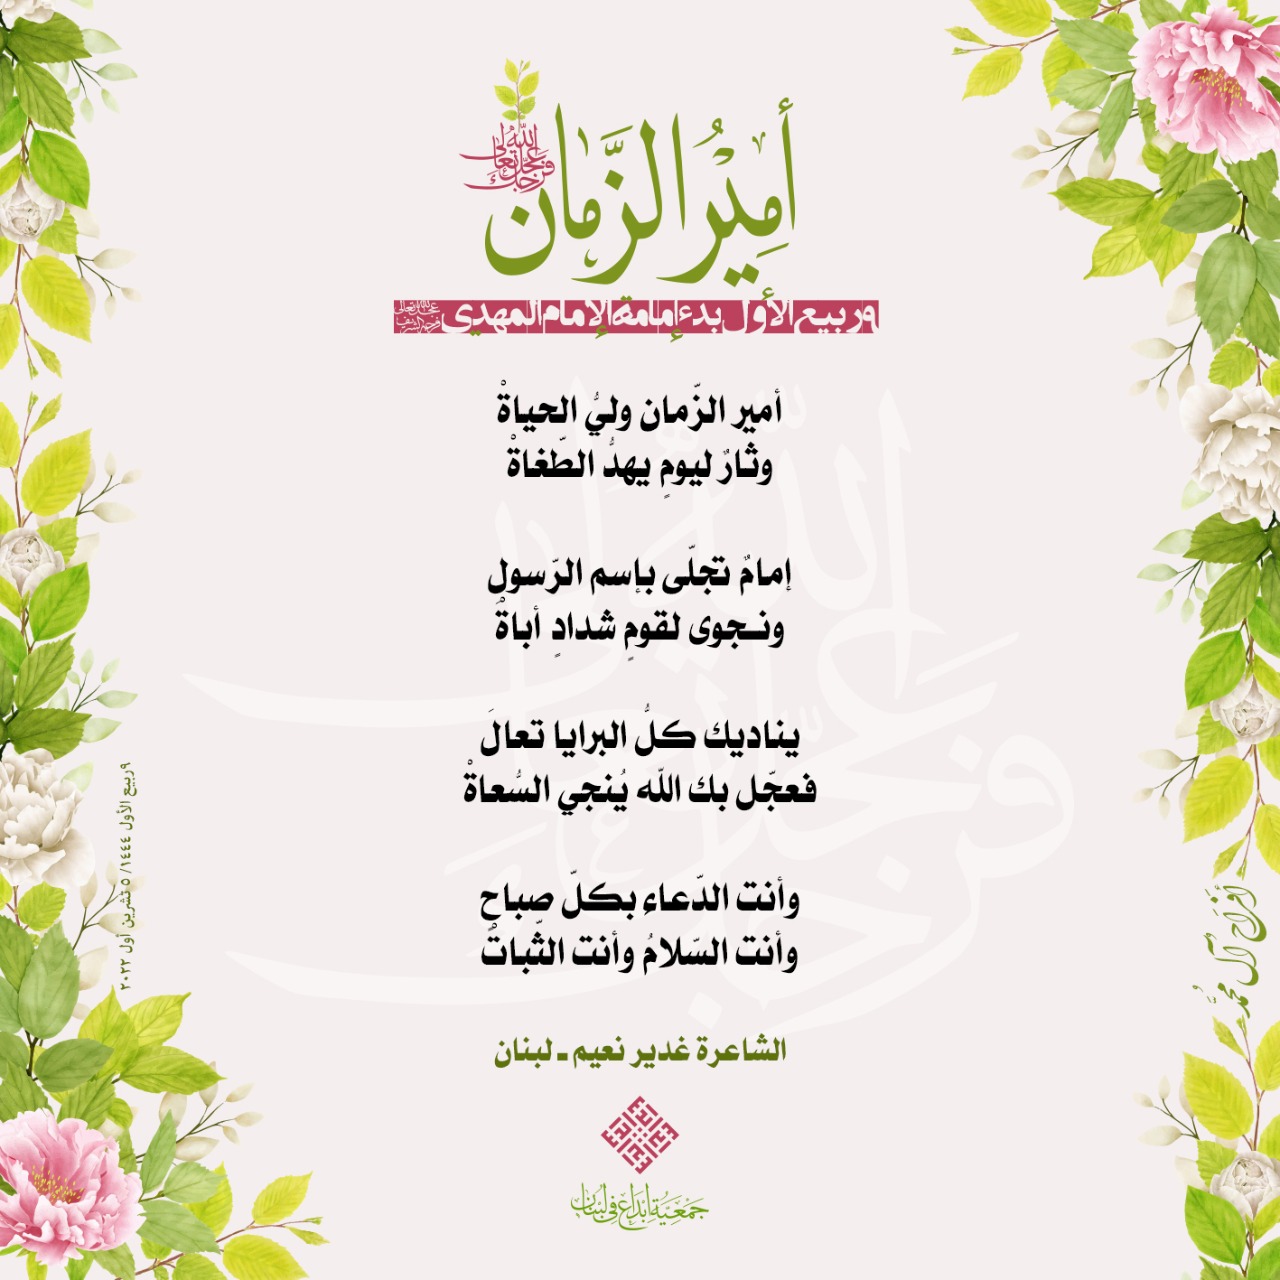 أَمِيْرُ الزَّمَان
عجّل الله تعالى فرجك
٩ ربيع الأول بدء إمامة الإمام المهدي
عجل الله تعالى فرجه الشريف
أمير الزّمان وليُّ الحياةْ
وثارٌ ليومٍ يهدُّ الطّغاةْ
إمامٌ تجلّى بإسم الرّسول
ونـجوى لقومٍ شدادٍ أباةْ
يناديك كلُّ البرايا تعالَ
فعجّل بك اللّه يُنجي السُّعاةْ
وأنت الدّعاء بكلّ صباحٍ
وأنت السّلامُ وأنت الثّباتْ
الشاعرة غدير نعيم ـ لبنان
جمعية إبداع في لبنان
٩ ربيع الأول ١٤٤٤/ ٥ تشرين أول ٢٠٢٢
أفراح آل محمد